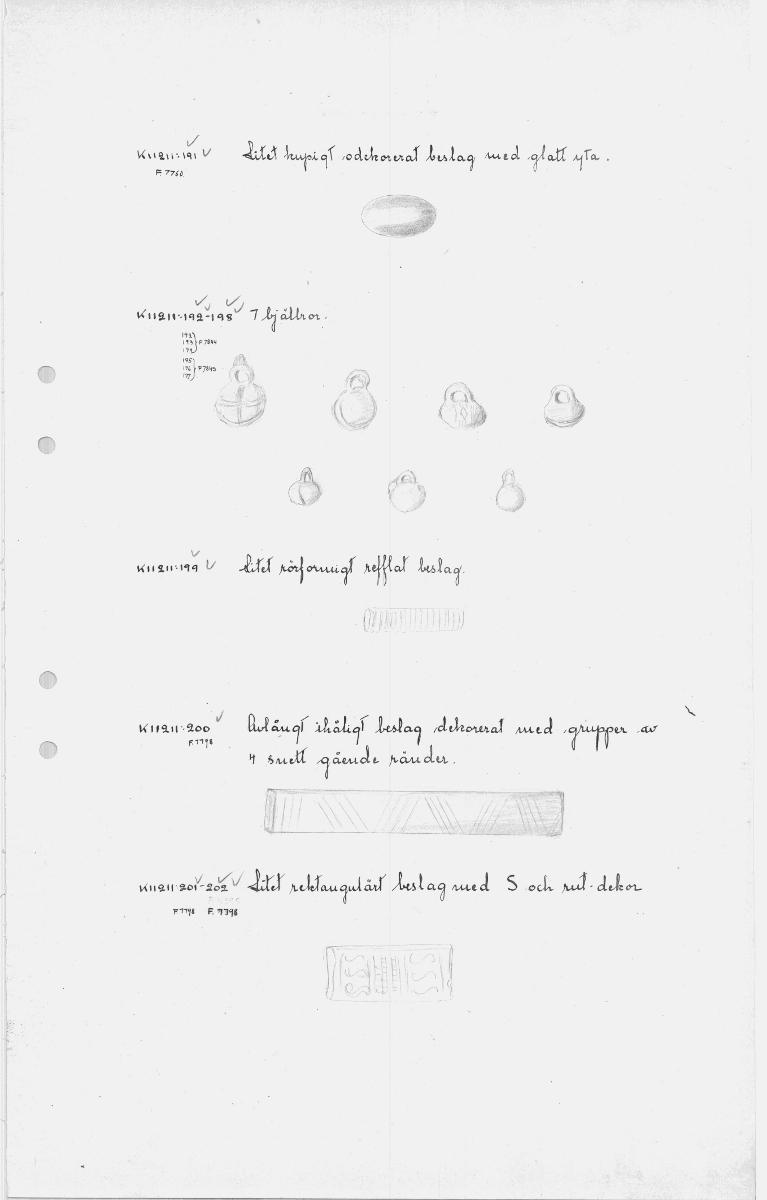 K11211:191 Litet kupigt odekorerat beslag med glatt yta.
F.7760.
K11211:192-198 7 bjällror.
192
193 F.7844
194
195
196 F.7845
197
K11211:199 Litet rörformigt refflat beslag.
K11211:200 Avlångt ihåligt beslag dekorerat med grupper av
F.7798
4 snett gående ränder.
K11211:201-202 Litet rektangulärt beslag med S och rut-dekor
F.7798 F.7798